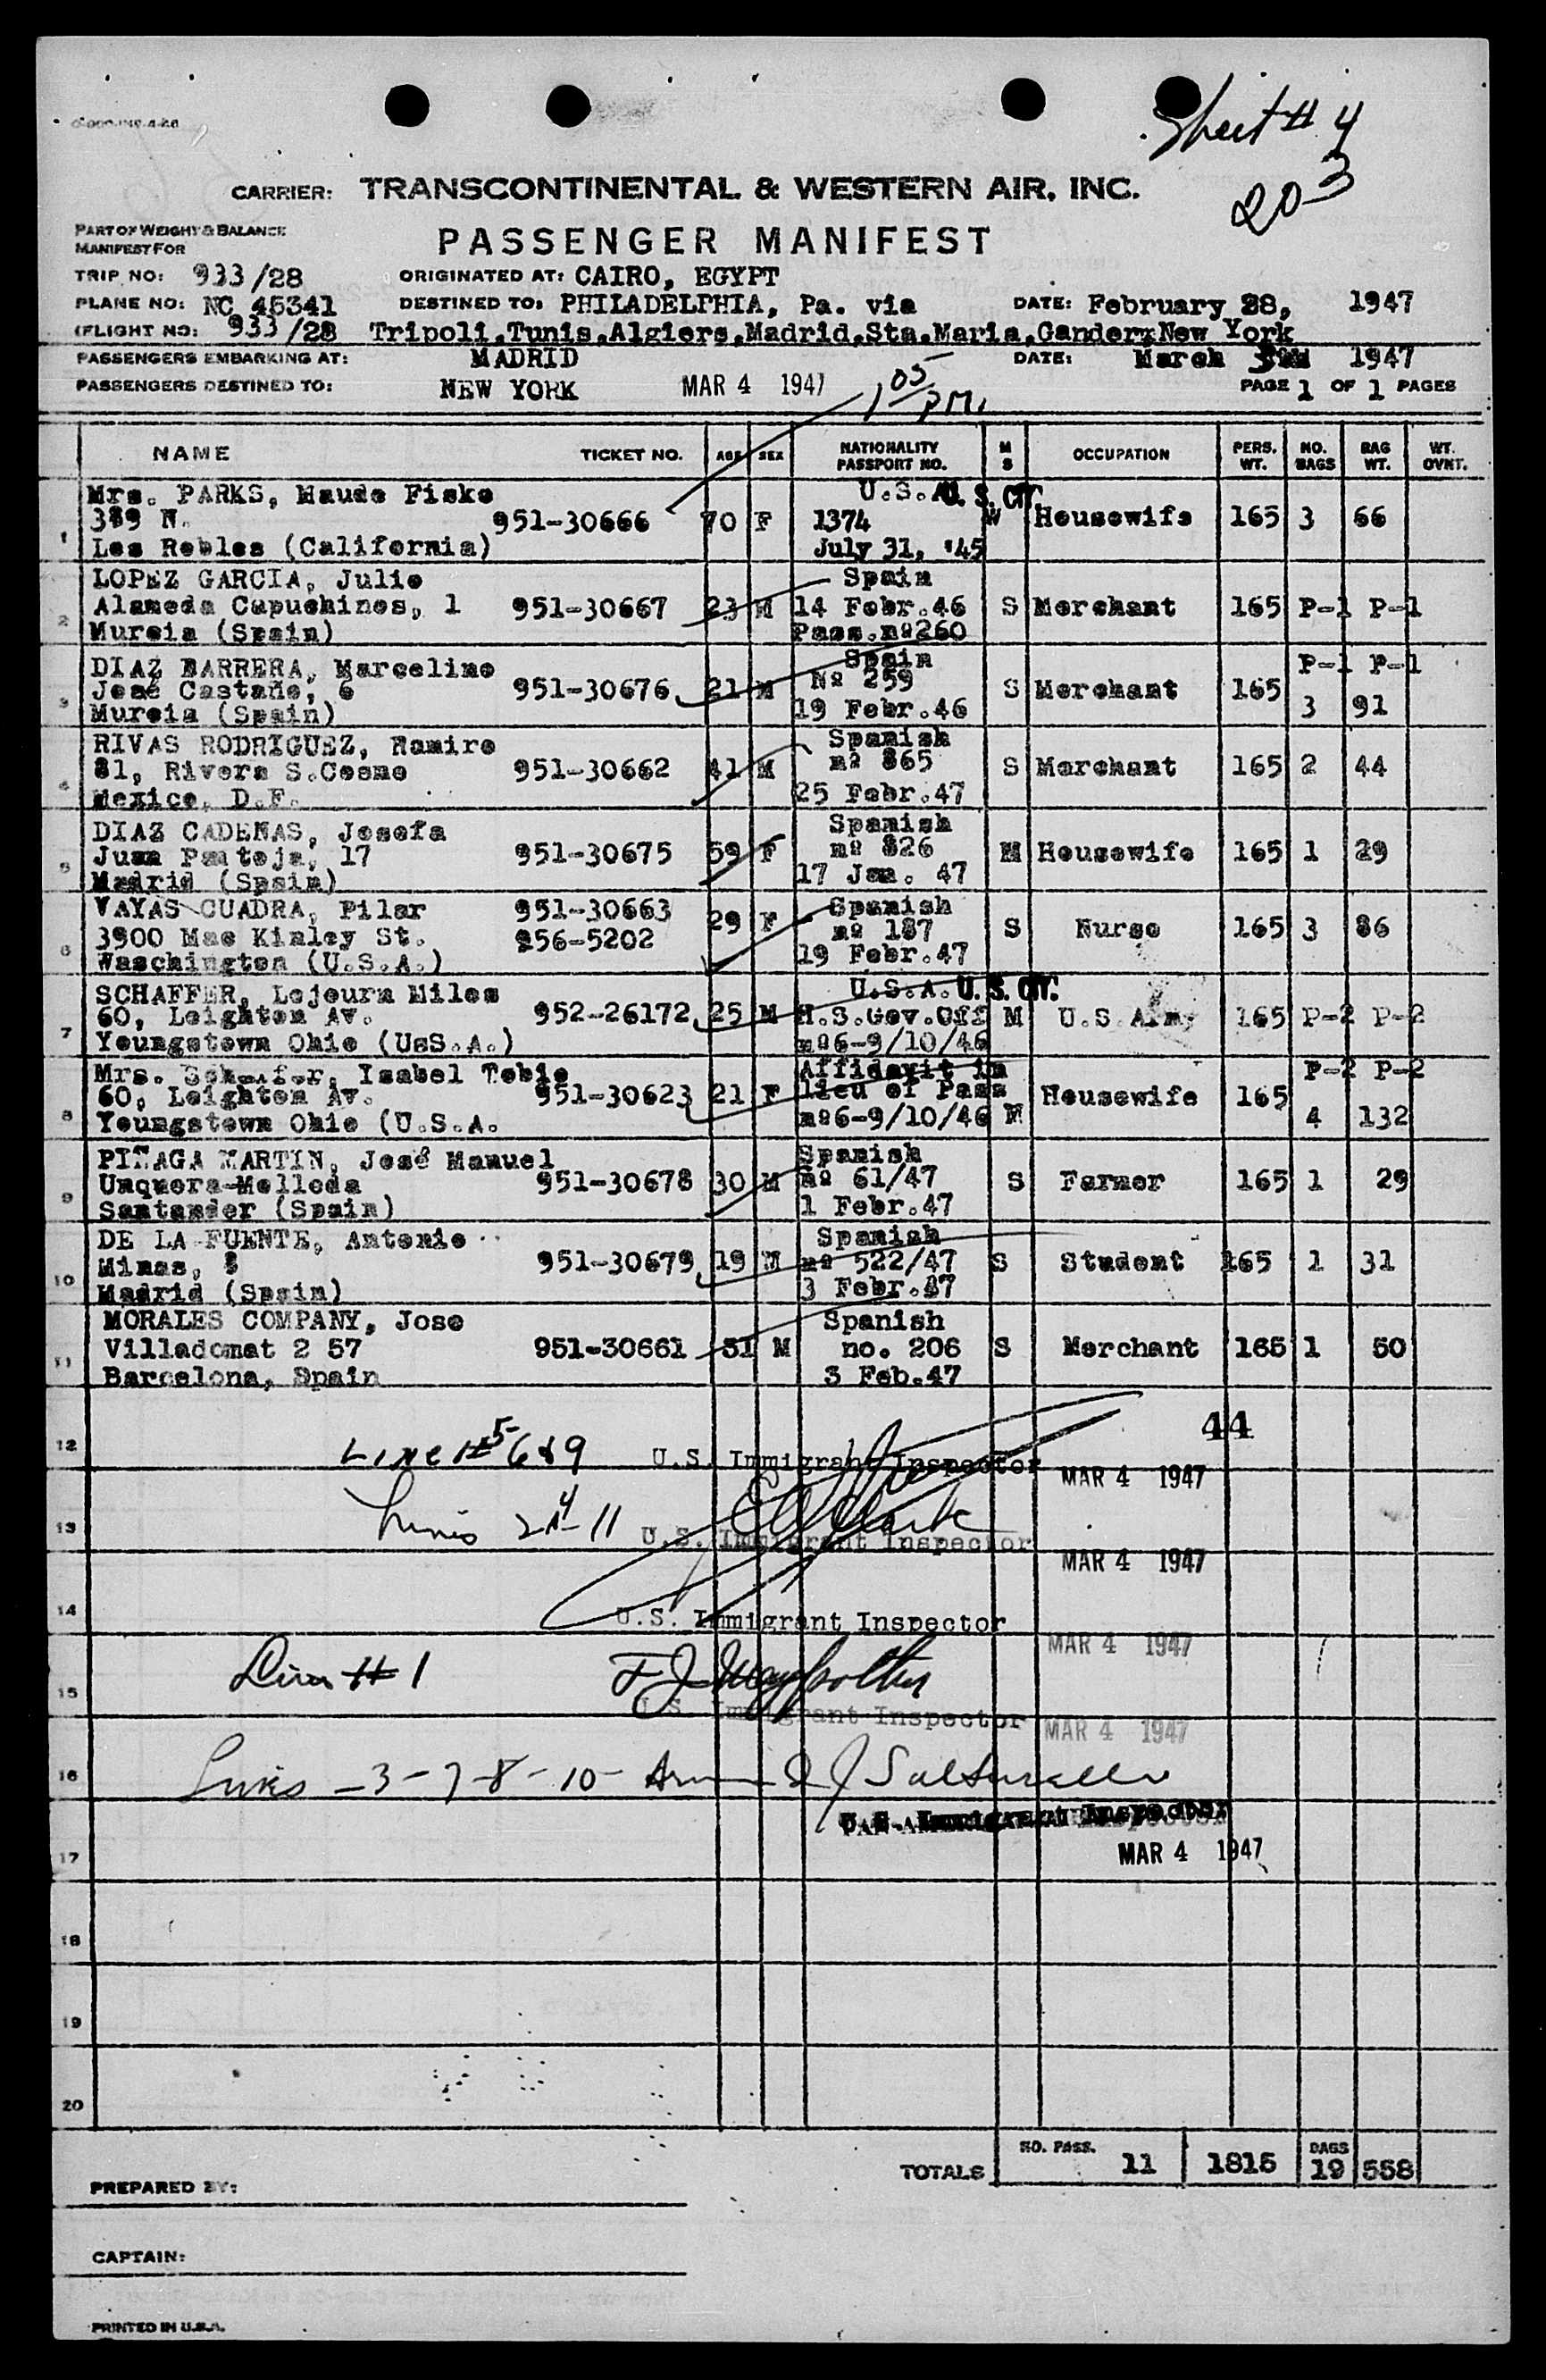 Sheet # 4
20 3
CARRIER: TRANSCONTINENTAL & WESTERN AIR, INC.
PART OF WEIGHT & BALANCE
MANIFEST FOR
PASSENGER MANIFEST
TRIP NO: 933/28 ORIGINATED AT: CAIRO, EGYPT
PLANE NO: NC 45341 DESTINED TO: PHILADELPHIA, Pa. via DATE: February 28, 1947
FLIGHT NO: 933/28 Tripoli,Tunis,Algiers,Madrid,Sta.Maria,Gander,New York
PASSENGERS EMBARKING AT: MADRID DATE: March 1947
PASSENGERS DESTINED TO: NEW YORK MAR 4 1947 1 05 PM. PAGE 1 OF 1 PAGES
NAME TICKET NO. AGE SEX NATIONALITY PASSPORT NO. M S OCCUPATION PERS. WT. NO. BAGS BAG WT. WT. OVNT.
Mrs. PARKS, Maude Fiske U.S.A U.S. CIT.
1 389 N. 951-30666 70 F 1374 W Housewife 165 3 66
Los Robles (California) July 31, '45
LOPEZ GARCIA, Julio Spain
2 Alameda Capuchinos, 1 951-30667 23 M 14 Febr.46 S Merchant 165 P-1 P-1
Murcia (Spain) Pass.nº260
DIAZ BARRERA, Marcelino Spain P-1 P-1
3 José Castaño, 6 951-30676 21 M Nº 259 S Merchant 165 3 91
Murcia (Spain) 19 Febr.46
RIVAS RODRIGUEZ, Ramiro Spanish
4 81, Rivera S.Cosme 951-30662 41 M nº 865 S Merchant 165 2 44
Mexico, D.F. 25 Febr.47
DIAZ CADENAS, Josefa Spanish
5 Juan Pantoja, 17 951-30675 59 F nº 826 M Housewife 165 1 29
Madrid (Spain) 17 Jan. 47
VAYAS CUADRA, Pilar 951-30663 29 F Spanish
6 3900 Mac Kinley St. 256-5202 nº 187 S Nurse 165 3 86
Waschington (U.S.A.) 19 Febr.47
SCHAFFER, Lejourn Miles U.S.A. U.S. CIT.
7 60, Leighton Av. 952-26172 25 M H.S.Gov.Off M U.S. Army 165 P-2 P-2
Youngstown Ohio (UsS.A.) nº6-9/10/46
Mrs. Schaffer, Isabel Tobio Affidavit in P-2 P-2
8 60, Leighton Av. 951-30623 21 F lieu of Pass Housewife 165
Youngstown Ohio (U.S.A. nº6-9/10/46 M 4 132
PIÑAGA MARTIN, José Manuel Spanish
9 Unquera-Molleda 951-30678 30 M nº 61/47 S Farmer 165 1 29
Santander (Spain) 1 Febr.47
DE LA FUENTE, Antonio Spanish
10 Minas, 8 951-30679 19 M nº 522/47 S Student 165 1 31
Madrid (Spain) 3 Febr.47
MORALES COMPANY, Jose Spanish
11 Villadomat 2 57 951-30661 31 M no. 206 S Merchant 165 1 50
Barcelona, Spain 3 Feb.47
44
12 Line # 5 6 & 9 U.S. Immigrant Inspector MAR 4 1947
13 Lines 2 4 11 Clark
U.S. Immigrant Inspector MAR 4 1947
14 U.S. Immigrant Inspector MAR 4 1947
15 Line # 1
U.S. Immigrant Inspector MAR 4 1947
16 Lines -3-7-8-10-
U.S. Immigrant Inspector
17 MAR 4 1947
18
19
20
TOTALS NO. PASS. 11 1815 BAGS 19 558
PREPARED BY:
CAPTAIN:
PRINTED IN U.S.A.